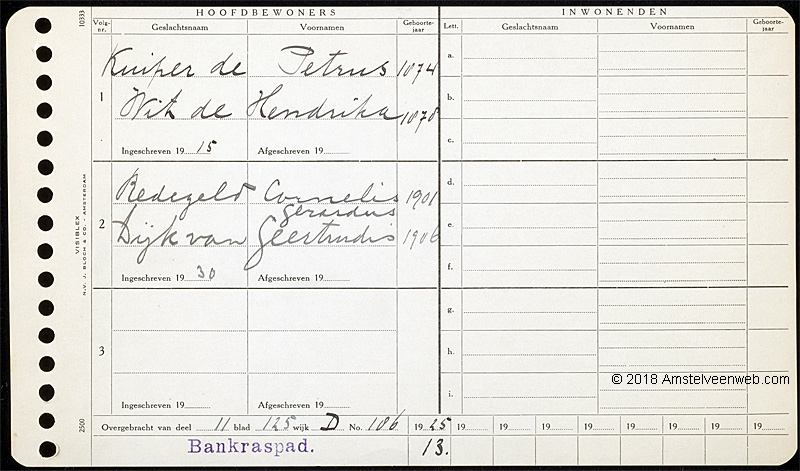 HOOFDBEWONERS INWONENDEN
Volg-nr. Geslachtsnaam Voornamen Geboorte-jaar Lett. Geslachtsnaam Voornamen Geboorte-jaar
Kuiper de Petrus 1874 a.
1 b.
Wit de Hendrika 1878
c.
Ingeschreven 1915 Afgeschreven 19
Redegeld Cornelis 1901 d.
Gerardus
2 e.
Dijk van Geertrudis 1906
f.
Ingeschreven 1930 Afgeschreven 19
g.
3 h.
i.
Ingeschreven 19 Afgeschreven 19
Overgebracht van deel 11 blad 125 wijk D No. 186 1925 19 19 19 19 19 19 19 19
Bankraspad. 13.
10333
VISIBLEX
N.V. J. BLOCH & CO. - AMSTERDAM
2500
© 2018 Amstelveenweb.com